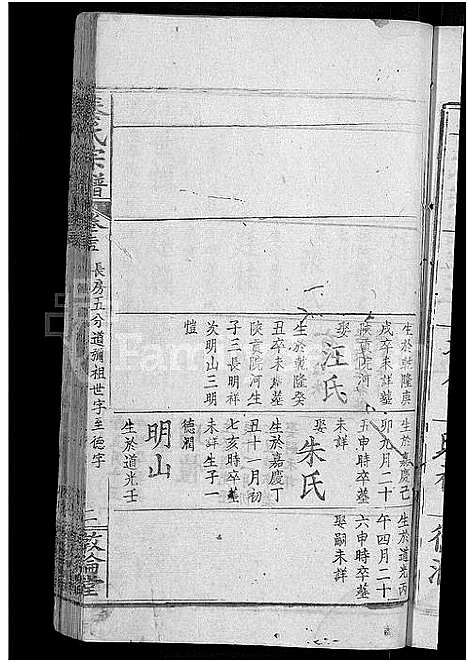 生於乾隆庚
戌卒未詳葬
陝貢院河
娶
汪氏
生於乾隆癸
丑卒未詳葬
陝貢院河生
子三長明祥
次明山三明
愷
生於嘉慶己
卯九月二十
五申時卒葬
未詳
娶
朱氏
生於嘉慶丁
丑十一月初
七亥時卒葬
未詳生子一
德潤
明山
生於道光壬
生於道光丙
午四月二十
六申時卒葬
娶嗣未詳
氏宗譜
長房五分道彌祖世字至德字
二
敦倫堂